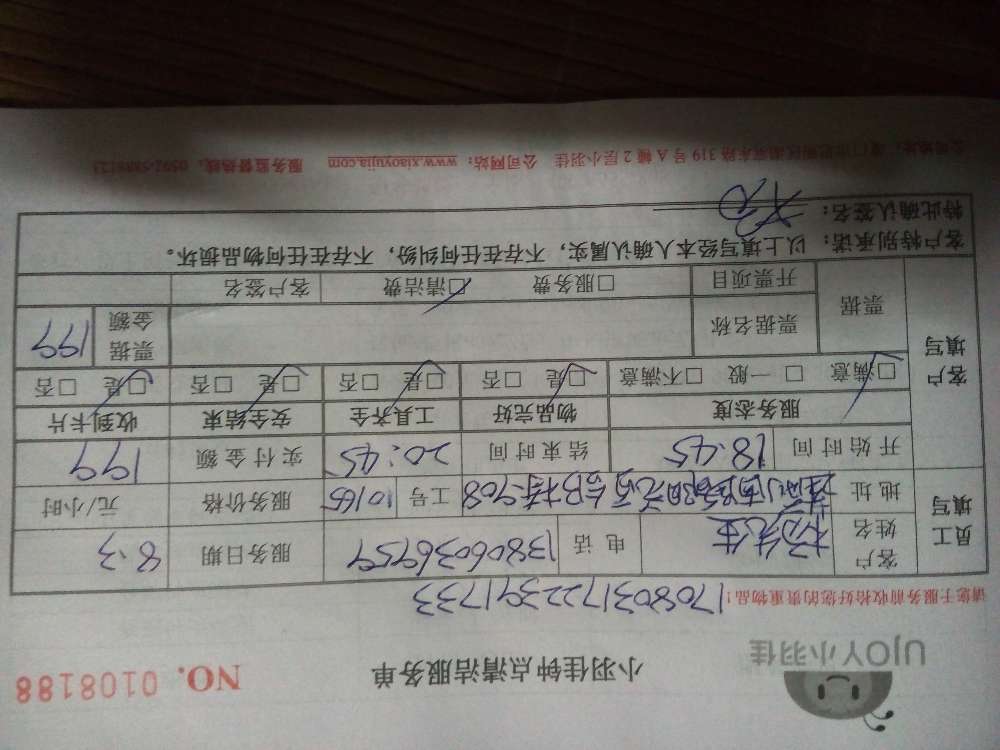 UJOY小羽佳
小羽佳钟点清洁服务单 NO. 0108188
请您于服务前收拾好您的贵重物品! 1708031722391733
员工填写 客户姓名 杨先生 电话 13806036959 服务日期 8.3
地址 工号 10165 服务价格 元/小时
开始时间 18:45 结束时间 20:45 实付金额 199
客户填写 服务态度 物品完好 工具齐全 安全结束 收到卡片
☑满意 □一般 □不满意 ☑是 □否 ☑是 □否 ☑是 □否 ☑是 □否
票据 票据名称 票据金额 199
开票项目 □服务费 ☑清洁费 客户签名
客户特别承诺: 以上填写经本人确认属实,不存在任何纠纷,不存在任何物品损坏。
特此确认签名:
319号A幢2层小羽佳 公司网站: www.xiaoyujia.com 服务监督热线: